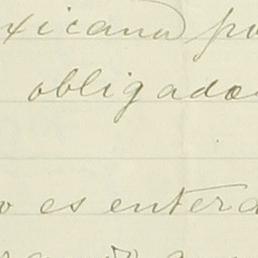 xicana po
obligado
o es enterd